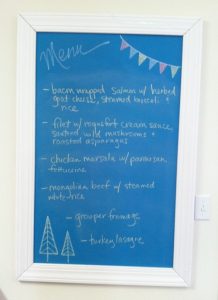 Menu
- bacon wrapped salmon w/ herbed
goat cheese, steamed broccoli +
rice
- filet w/ roquefort cream sauce,
sauteed wild mushrooms +
roasted asparagus
- chicken marsala w/ parmesan
fettuccine
- mongolian beef w/ steamed
white rice
- grouper fromage
- turkey lasagne